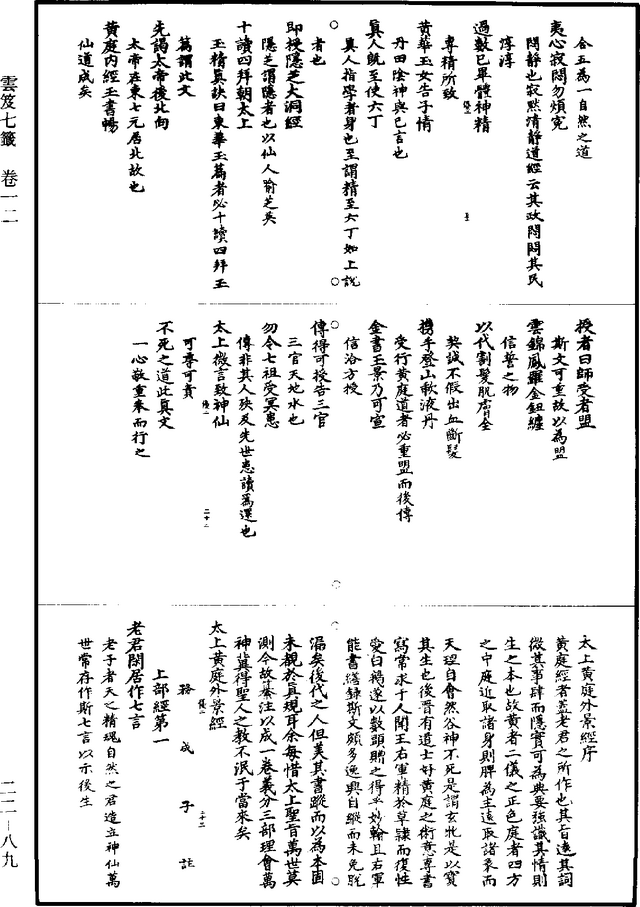 合五爲一自然之道
夷心寂悶勿煩冤
悶靜也寂黙清靜道經云其政悶悶其民
淳淳
過數已畢體神精
專精所致
黃華玉女告子情
丹田陰神與己言也
眞人既至使六丁
眞人指學者身也至謂精至六丁如上說
者也
即授隱芝大洞經
隱芝謂隱者也以仙人喻芝矣
十讀四拜朝太上
玉精眞訣曰東華玉篇者必十讀四拜玉
篇謂此文
先謁太帝後北向
太帝在東七元居北故也
黃庭内經玉書暢
仙道成矣
授者曰師受者盟
斯文可重故以為盟
雲錦鳳羅金鈕纏
信誓之物
以代割髮肌膚全
契誠不假出血斷髮
携手登山歃液丹
受行黃庭道者必重盟而後傳
金書玉景乃可宣
信洽方授
傳得可授告三官
三官天地水也
勿令七祖受冥患
傳非其人殃及先世患讀爲還也
太上微言致神仙
可尊可貴
不死之道此眞文
一心敬重奉而行之
太上黃庭外景經序
黃庭經者蓋老君之所作也其旨遠其詞
微其事肆而隱實可為典要強識其情則
生之本也故黃者二儀之正色庭者四方
之中庭近取諸身則脾為主遠取諸象而
天理自會然谷神不死是謂玄牝是以寶
其生也後晉有道士好黃庭之術意專書
寫常求于人聞王右軍精於草隸而復性
愛白鵝遂以數頭贈之得乎妙翰且右軍
能書繕錄斯文頗多逸興自縱而未免脫
漏矣後代之人但美其書蹤而以為本固
未覩於眞規耳余每惜太上聖旨萬世莫
測今故纂注以成一卷義分三部理會萬
神冀得聖人之教不泯于當來矣
太上黃庭外景經
務成子註
上部經第一
老君閒居作七言
老子者天之精魂自然之君造立神仙萬
世常存作斯七言以示後生
雲笈七籤 卷一二
二二－八九